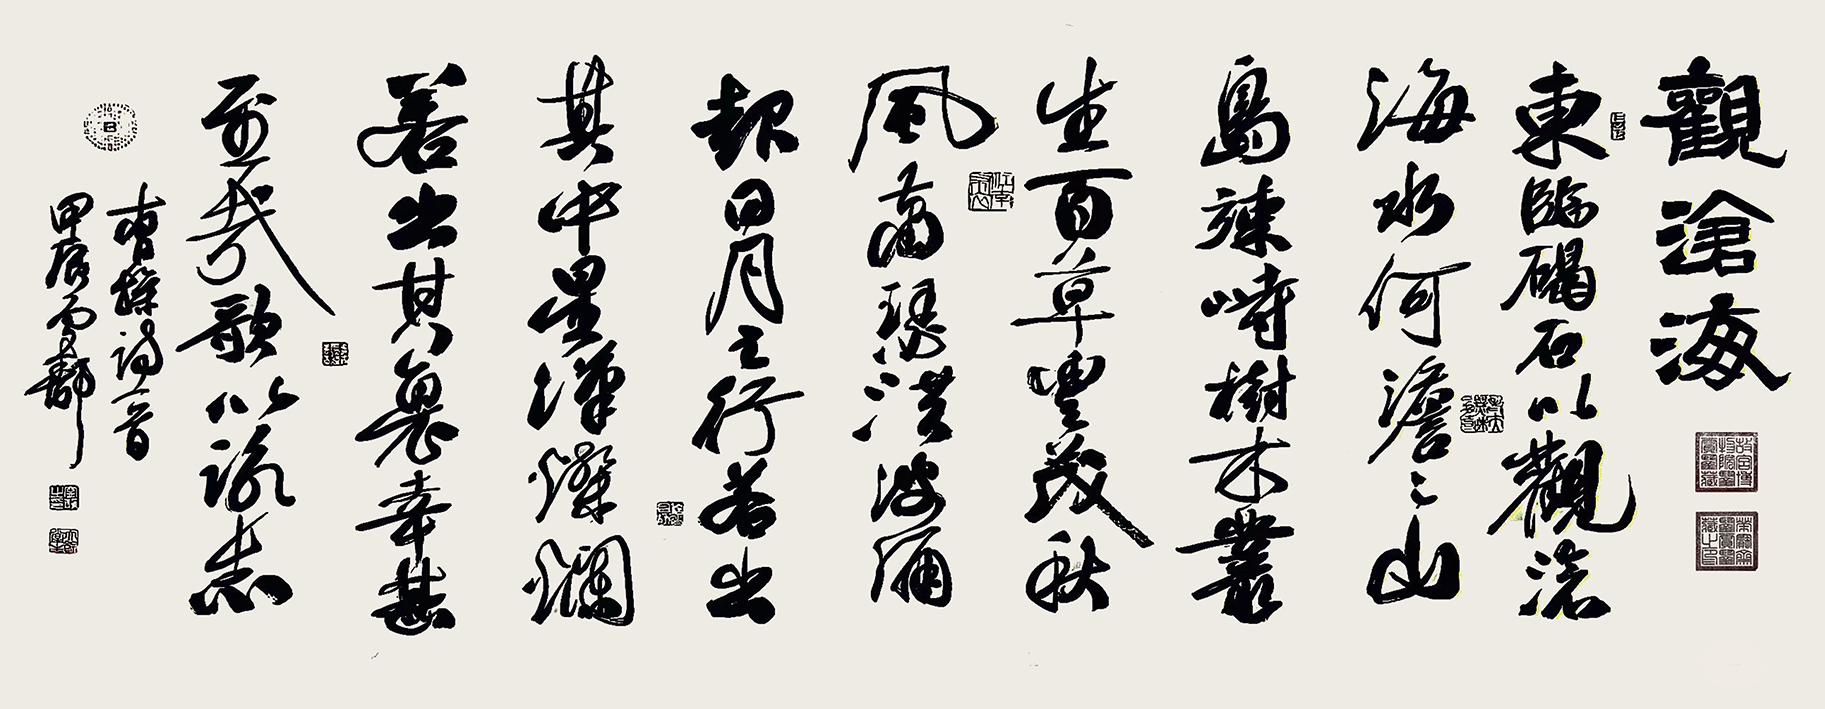 觀滄海
東臨碣石以觀滄
海水何澹〻山
島竦峙樹木叢
生百草豐茂秋
風蕭瑟洪波涌
起日月之行若出
其中星漢燦爛
若出其裏幸甚
至哉歌以詠志
曹操詩一首
甲辰